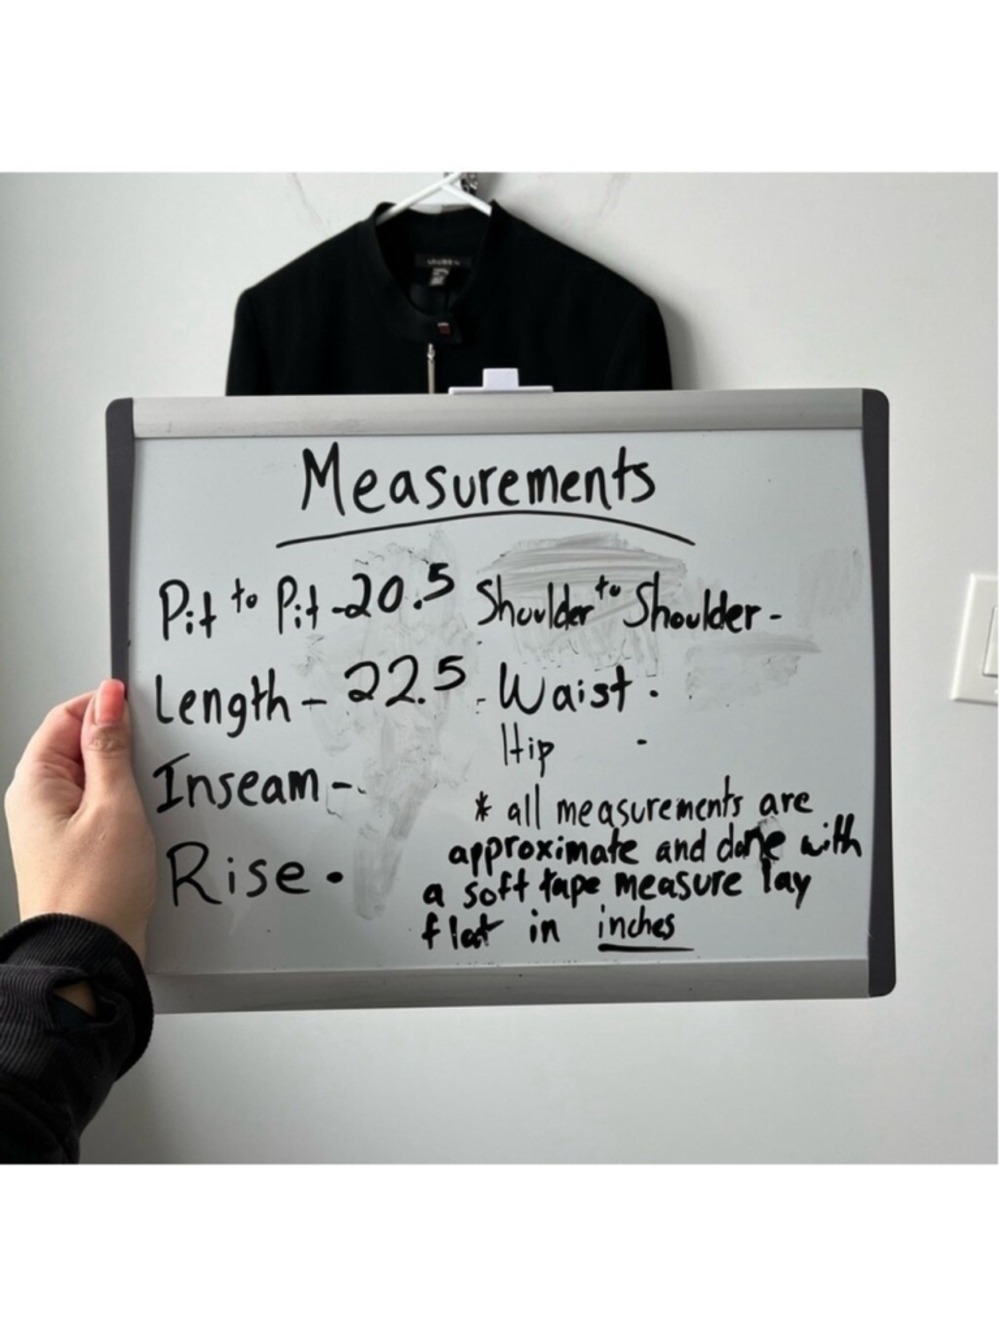 Measurements
Pit to Pit - 20.5 Shoulder to Shoulder -
Length - 22.5 - Waist .
Hip -
Inseam -
Rise .
* all measurements are
approximate and done with
a soft tape measure lay
flat in inches